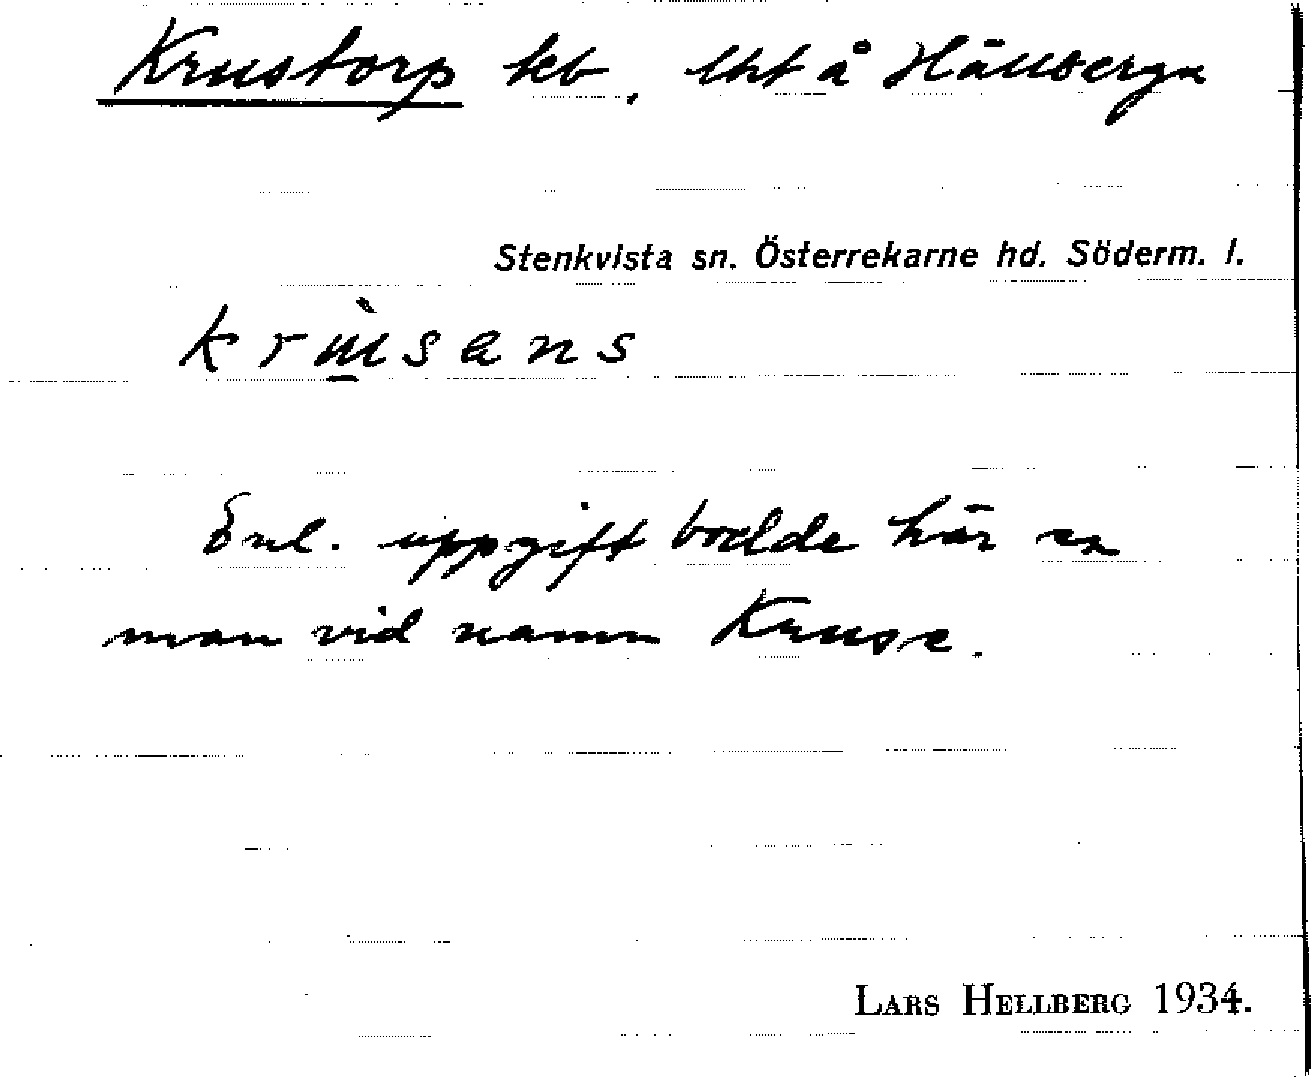 Krustorp tcb, lht å Hällberga
Stenkvista sn. Österrekarne hd. Söderm. l.
krùsans
Enl. uppgift bodde här en
man vid namn Kruse.
LARS HELLBERG 1934.